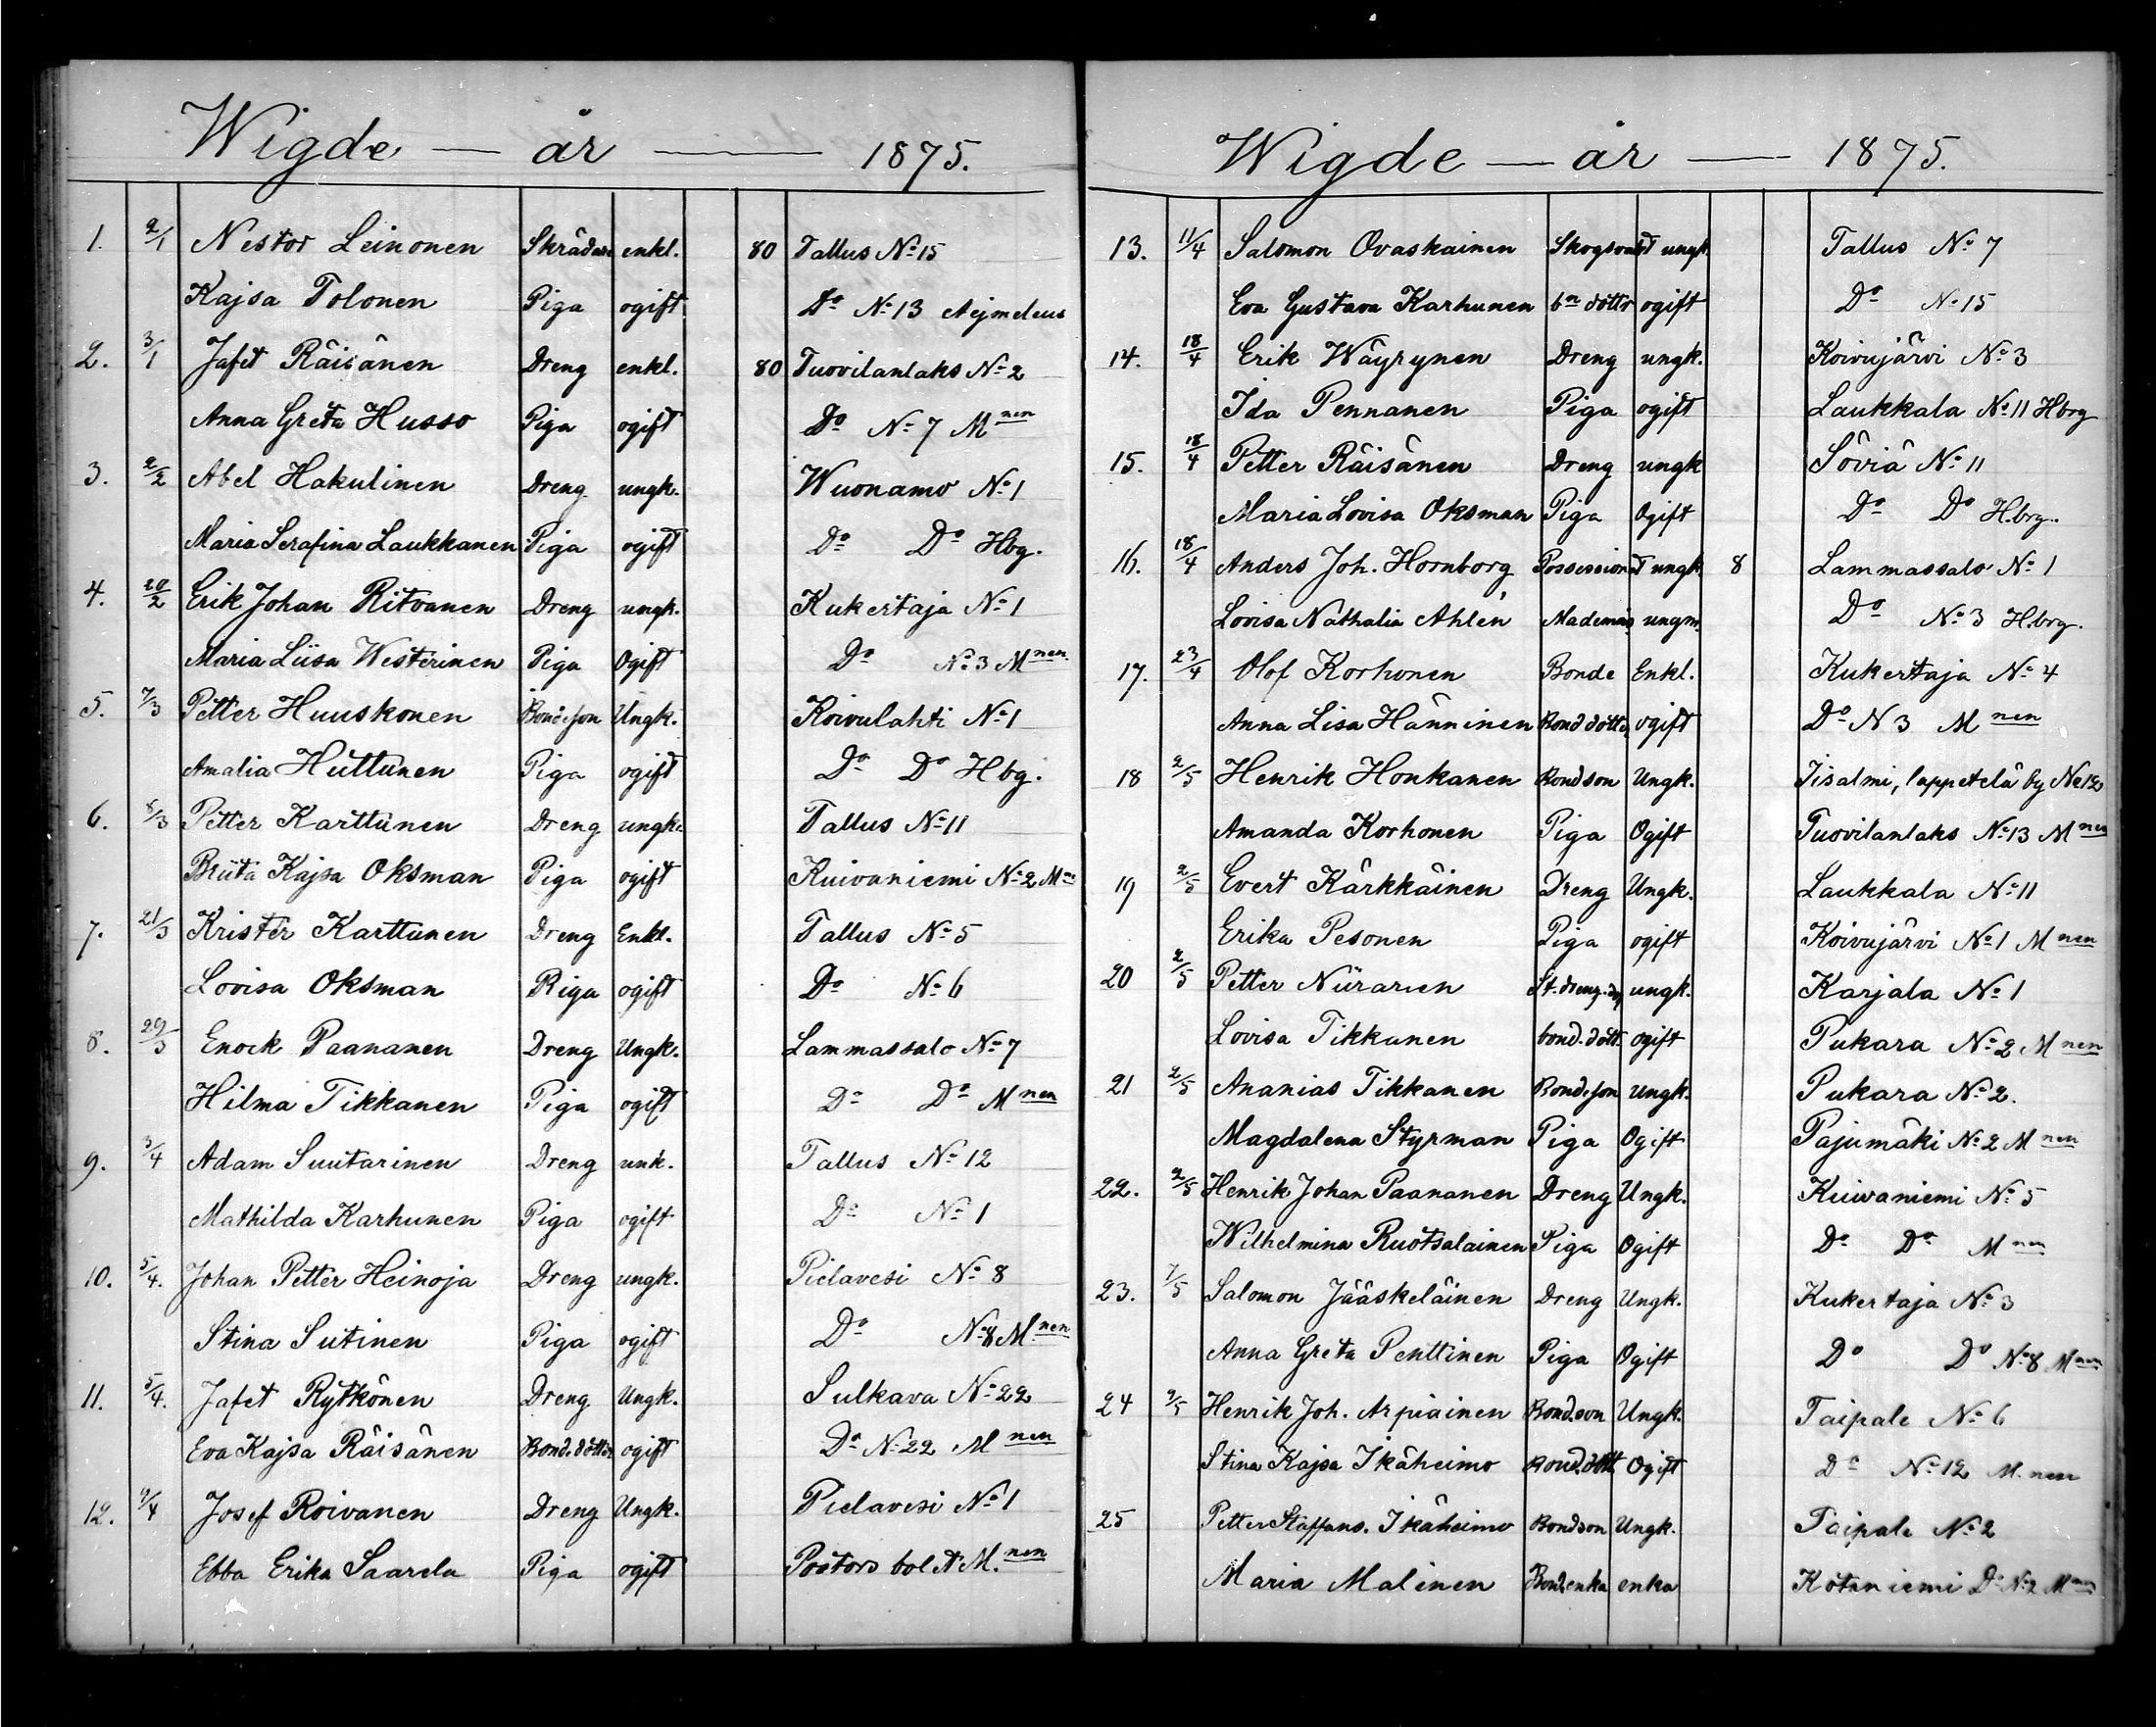 Wigde — år — 1875.
1. 2/1 Nestor Leinonen Skrädare enkl. 80 Tallus No 15
Kajsa Tolonen Piga ogift Do No 13 Aejmeleus
2. 3/1 Jafet Räisänen Dreng enkl. 80 Tuovilanlaks No 2
Anna Greta Husso Piga ogift Do No 7 Mnen
3. 2/2 Abel Hakulinen Dreng ungk. Wuonamo No 1
Maria Serafina Laukkanen Piga ogift Do Do Hbg.
4. 20/2 Erik Johan Ritvanen Dreng ungk. Kukertaja No 1
Maria Liisa Westerinen Piga Ogift Do No 3 Mnen
5. 7/3 Petter Huuskonen Bondeson Ungk. Koivulahti No 1
Amalia Huttunen Piga ogift Do Do Hbg.
6. 8/3 Petter Karttunen Dreng ungk. Tallus No 11
Briita Kajsa Oksman Piga ogift Kuivaniemi No 2 Mnn
7. 21/3 Krister Karttunen Dreng Enkl. Tallus No 5
Lovisa Oksman Piga ogift Do No 6
8. 29/3 Enock Paananen Dreng Ungk. Lammassalo No 7
Hilma Tikkanen Piga ogift Do Do Mnen
9. 3/4 Adam Suutarinen Dreng unk. Tallus No 12
Mathilda Karhunen Piga ogift Do No 1
10. 5/4. Johan Petter Heinoja Dreng ungk. Pielavesi No 8
Stina Sutinen Piga ogift Do No 8 Mnen
11. 5/4. Jafet Rytkönen Dreng Ungk. Sulkava No 22
Eva Kajsa Räisänen Bond. dotter ogift Do No 22 Mnen
12. 9/4 Josef Roivanen Dreng Ungk. Pielavesi No 1
Ebba Erika Saarela Piga ogift Pastors bolet M.nen
Wigde — år — 1875.
13. 11/4 Salomon Ovaskainen Skogsvakt ungk. Tallus No 7
Eva Gustava Karhunen bn dottr ogift Do No 15
14. 18/4 Erik Wäyrynen Dreng ungk. Koivujärvi No 3
Ida Pennanen Piga ogift Laukkala No 11 Hbrg
15. 18/4 Petter Räisänen Dreng ungk Söviä No 11
Maria Lovisa Oksman Piga Ogift Do Do Hbrg.
16. 18/4 Anders Joh. Hornborg Possessionat ungk. 8 Lammassalo No 1
Lovisa Nathalia Ahlén Mademois ungm. Do No 3 Hbrg.
17. 23/4 Olof Korhonen Bonde Enkl. Kukertaja No 4
Anna Lisa Hänninen Bond dotter ogift Do N 3 Mnen
18 2/5 Henrik Honkanen Bondson Ungk. Iisalmi, lappetelä by No 12
Amanda Korhonen Piga Ogift Tuovilanlaks No 13 Mnen
19 2/5 Evert Kärkkäinen Dreng Ungk. Laukkala No 11
Erika Pesonen Piga ogift Koivujärvi No 1 Mnen
20 2/5 Petter Niiranen St. dreng ungk. Karjala No 1
Lovisa Tikkanen bond. dott. ogift Pukara No 2 Mnen
21 2/5 Ananias Tikkanen Bondeson Ungk. Pukara No 2.
Magdalena Styrman Piga Ogift Pajumäki No 2 Mnen
22. 2/5 Henrik Johan Paananen Dreng Ungk. Kuivaniemi No 5
Wilhelmina Ruotsalainen Piga Ogift Do Do Mnen
23. 7/5 Salomon Jääskeläinen Dreng Ungk. Kukertaja No 3
Anna Greta Penttinen Piga Ogift Do Do No 8 Mnen
24 9/5 Henrik Joh. Arpiainen Bondson Ungk. Taipale No 6
Stina Kajsa Ikäheimo Bond. dott. Ogift Do No 12 M.nen
25 Petter Staffans. Ikäheimo Bondson Ungk. Taipale No 2
Maria Malinen Bond.enka enka Kotaniemi Do No 2 Mnen